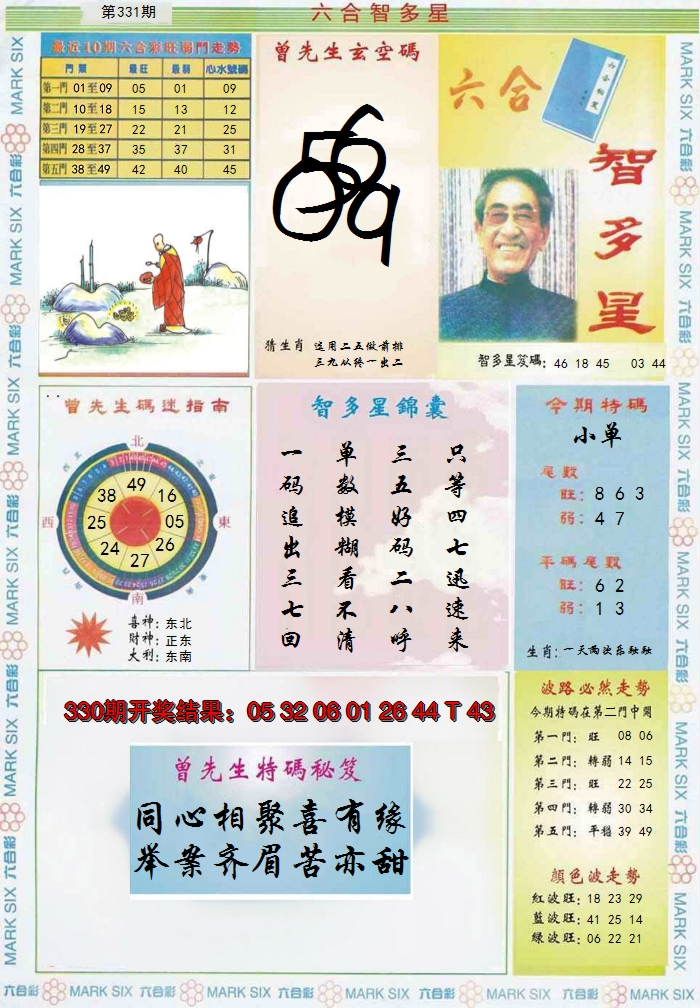 第331期
六合智多星
最近10期六合彩旺弱門走勢
門類 最旺 最弱 心水號碼
第一門 01至09 05 01 09
第二門 10至18 15 13 12
第三門 19至27 22 21 25
第四門 28至37 35 37 31
第五門 38至49 42 40 45
曾先生玄空碼
猜生肖 运用二五做前排
三九从终一出二
六合
智多星
智多星笈碼: 46 18 45 03 44
曾先生碼迷指南
北
東
南
西
49
16
05
26
27
24
25
38
喜神: 东北
財神: 正东
大利: 东南
智多星錦囊
一码追出三七回
单数模糊看不清
三五好码二八呼
只等四七迅速来
今期特碼
小单
尾數
旺: 8 6 3
弱: 4 7
平碼尾數
旺: 6 2
弱: 1 3
生肖: 一天两次乐融融
330期开奖结果: 05 32 06 01 26 44 T 43
曾先生特碼秘笈
同心相聚喜有缘
举案齐眉苦亦甜
波路必然走勢
今期特碼在第二門中開
第一門: 旺 08 06
第二門: 轉弱 14 15
第三門: 旺 22 25
第四門: 轉弱 30 34
第五門: 平穩 39 49
顔色波走勢
紅波旺: 18 23 29
藍波旺: 41 25 14
绿波旺: 06 22 21
六合彩 MARK SIX 六合彩 MARK SIX 六合彩 MARK SIX 六合彩 MARK SIX 六合彩